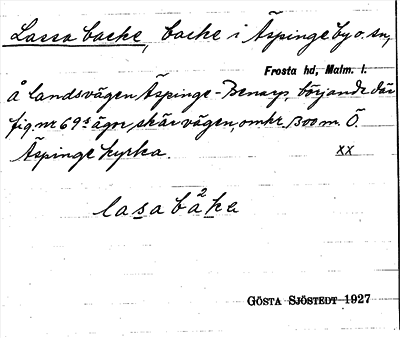 Lassa backe, backe i Äspinge by o. sn,
Frosta hd, Malm. l.
å landsvägen Äspinge - Benarp, började där
fig. nr 69s ägor skär vägen, omkr. 1300 m. Ö.
Äspinge kyrka. xx
lasa bà2ke
GÖSTA SJÖSTEDT 1927